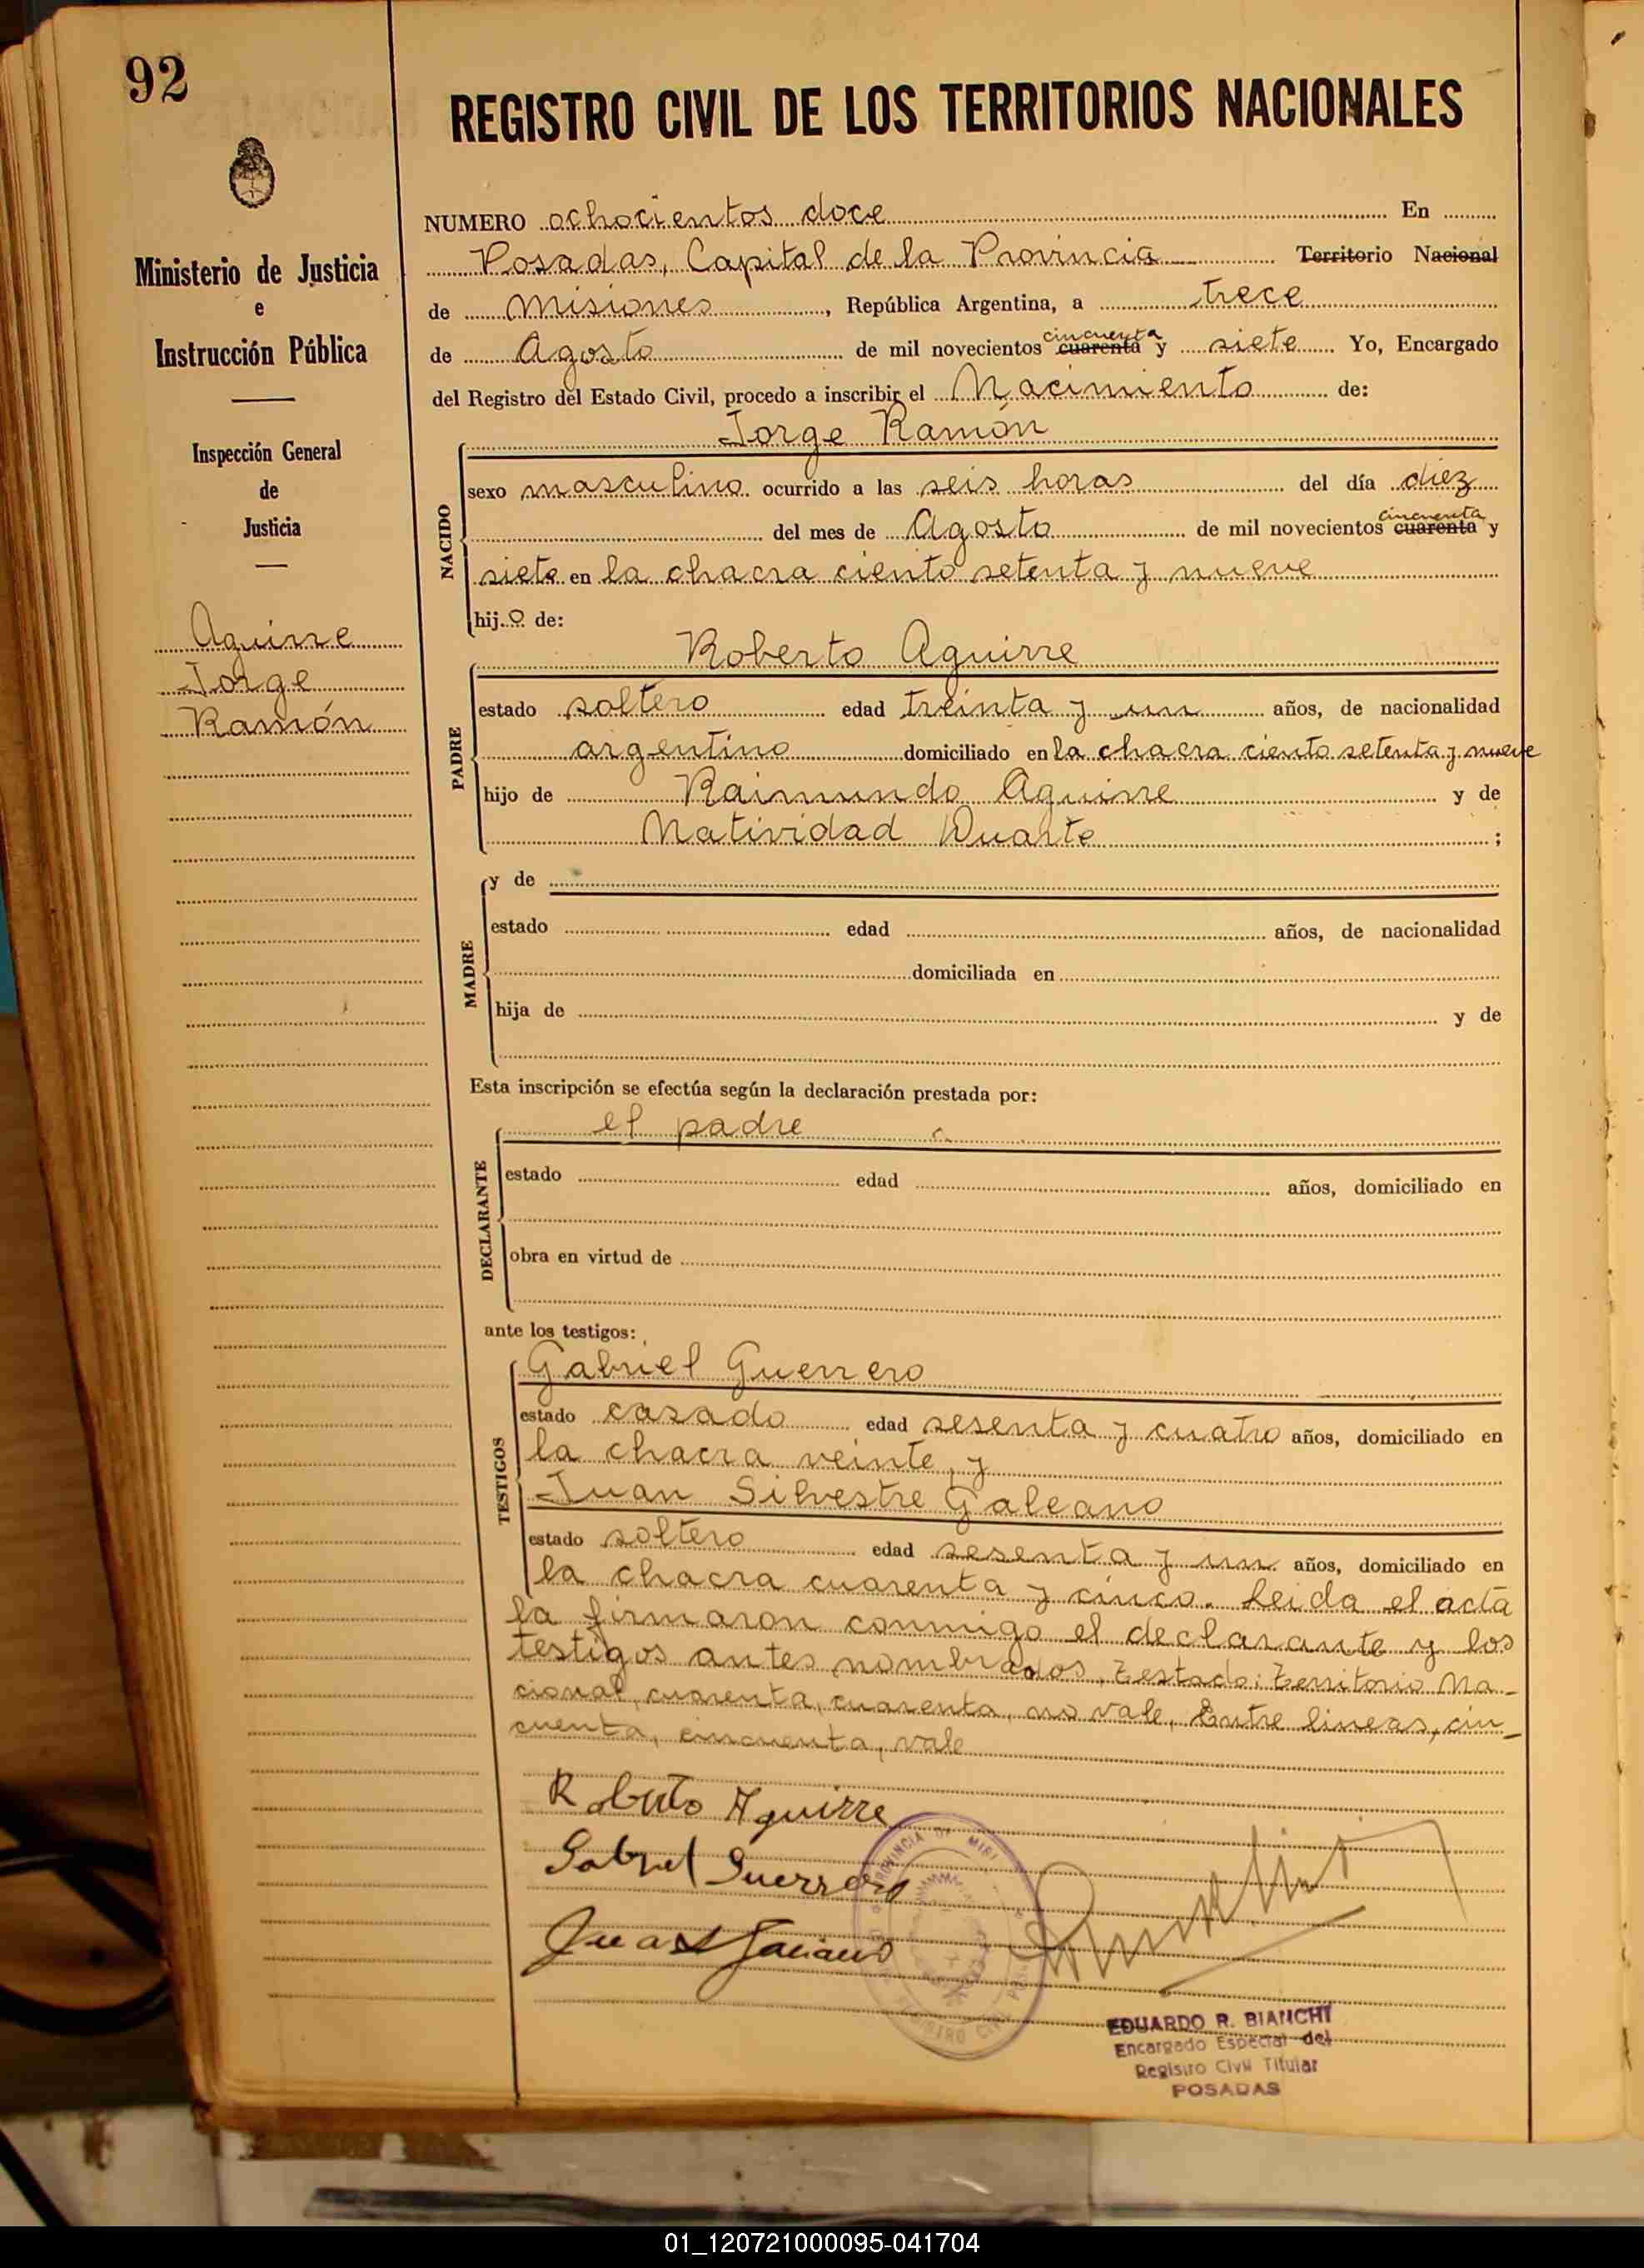 92
REGISTRO CIVIL DE LOS TERRITORIOS NACIONALES
Ministerio de Justicia
e
Instrucción Pública
Inspección General
de
Justicia
Aguirre
Jorge
Ramón
NUMERO ochocientos doce En
Posadas, Capital de la Provincia Territorio Nacional
de Misiones, República Argentina, a trece
cincuenta
de Agosto de mil novecientos cuarenta y siete Yo, Encargado
del Registro del Estado Civil, procedo a inscribir el Nacimiento de:
Jorge Ramón
NACIDO
sexo masculino ocurrido a las seis horas del día diez
cincuenta
del mes de Agosto de mil novecientos cuarenta y
siete en la chacra ciento setenta y nueve
hijo de:
Roberto Aguirre
PADRE
estado soltero edad treinta y un años, de nacionalidad
argentino domiciliado en la chacra ciento setenta y nueve
hijo de Raimundo Aguirre y de
Natividad Duarte;
MADRE
y de
estado edad años, de nacionalidad
domiciliada en
hija de y de
Esta inscripción se efectúa según la declaración prestada por:
el padre
DECLARANTE
estado edad años, domiciliado en
obra en virtud de
ante los testigos:
TESTIGOS
Gabriel Guerrero
estado casado edad sesenta y cuatro años, domiciliado en
la chacra veinte, y
Juan Silvestre Galeano
estado soltero edad sesenta y un años, domiciliado en
la chacra cuarenta y cinco. Leida el acta
la firmaron conmigo el declarante y los
testigos antes nombrados, Testado: Territorio Na-
cional, cuarenta, cuarenta, no vale, Entre lineas, cin-
cuenta, cincuenta, vale
Roberto Aguirre
Gabriel Guerrero
Juan S Galeano
PROVINCIA DE MISI
REGISTRO CIVIL
EDUARDO R. BIANCHI
Encargado Especial del
Registro Civil Titular
POSADAS
01_120721000095-041704